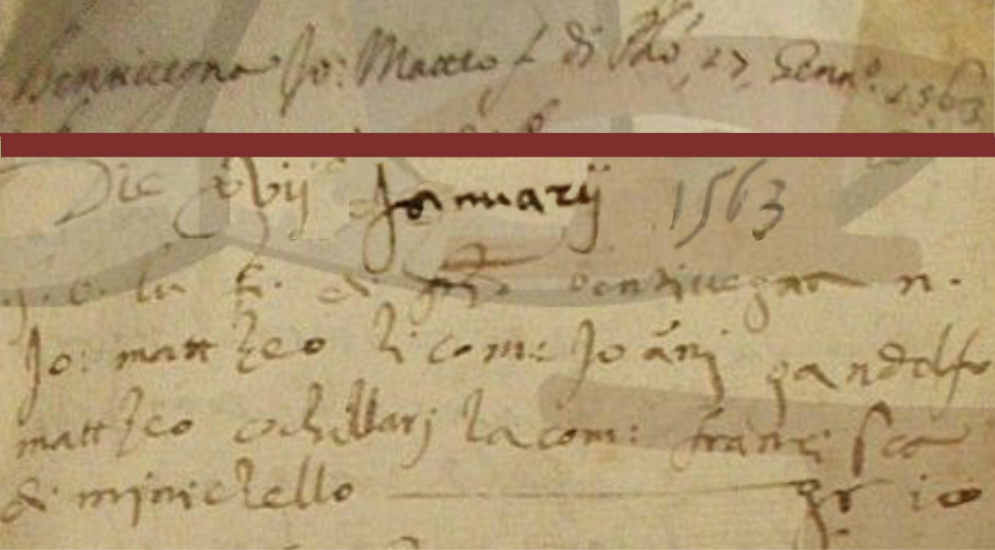 Bennivegna Jo: Matteo f. di Tho: 17 Genn.° 1563
Die xvij Januarij 1563
la f. di bentivegna n.
Jo: mattheo li com: Joanj gandolfo
mattheo la com: francisca
di minichello gr 10